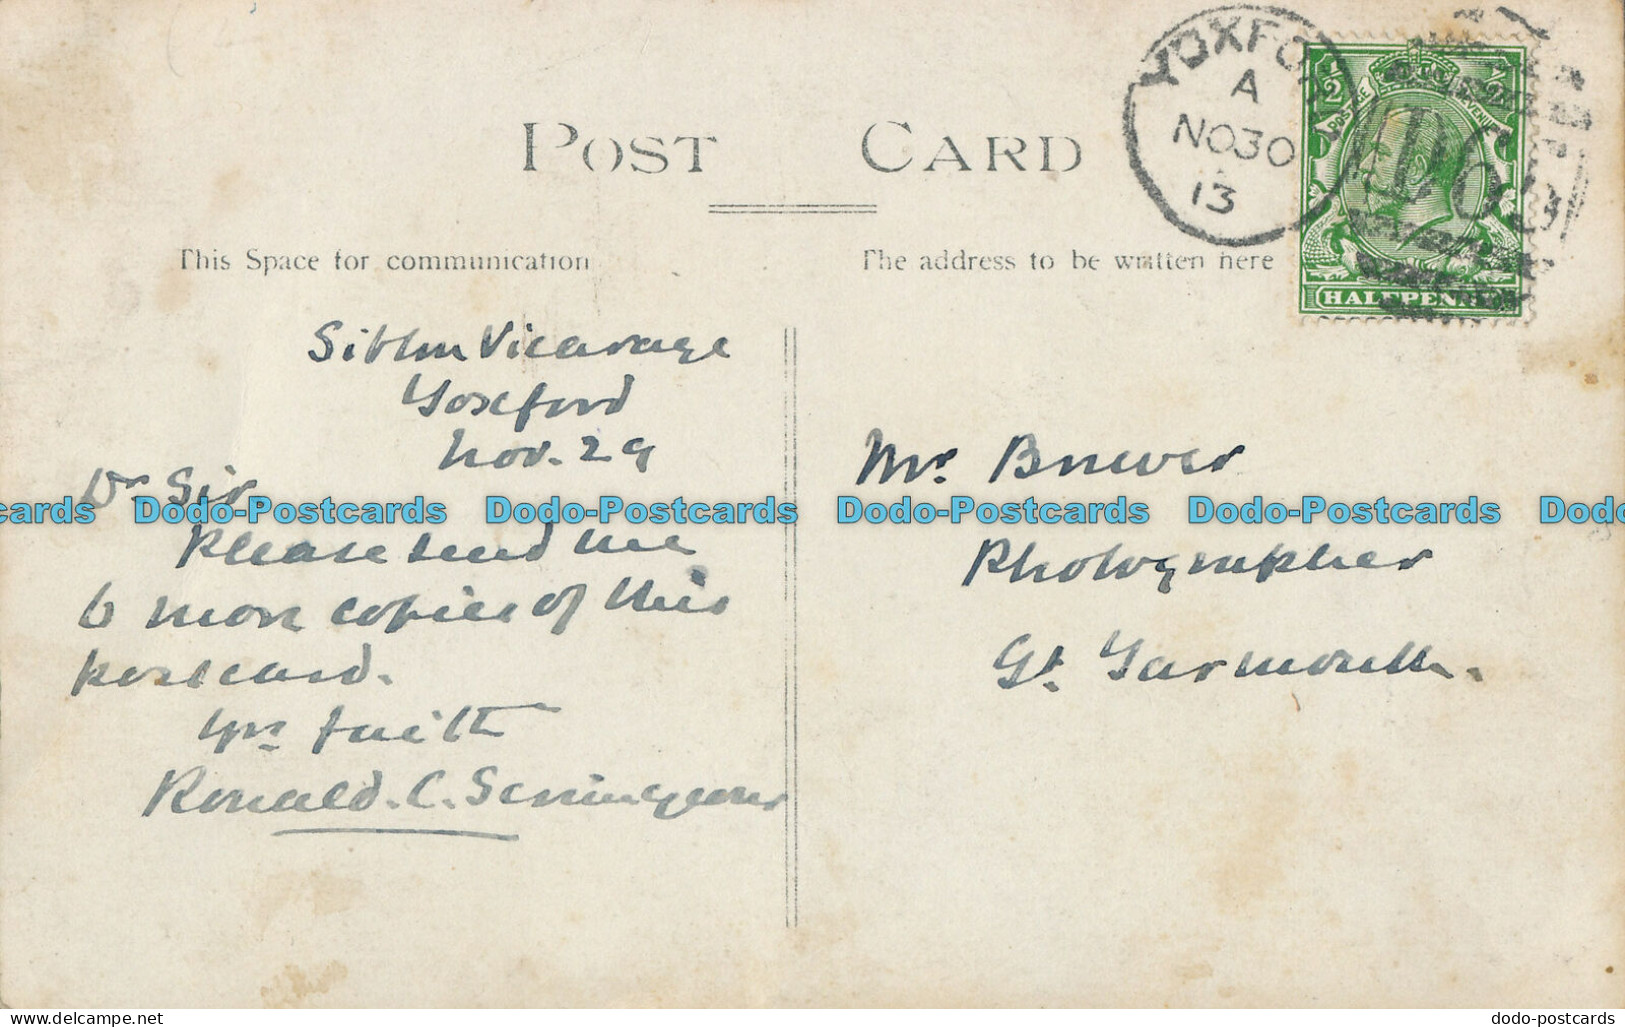 POST CARD
This Space for communication
The address to be written here
YOXFORD
A
NO 30
13
D6
3
1/2 1/2
POSTAGE REVENUE
HALFPENNY
Vicarage
Yoxford
Nov. 29
Dr Sir
Please send me
6 more copies of this
postcard.
Yrs faith
Ronald. C. Scrimgeour
Mr. Brewer
Photographer
Gt. Yarmouth.
cards Dodo-Postcards Dodo-Postcards Dodo-Postcards Dodo-Postcards Dodo
www.delcampe.net
dodo_postcards